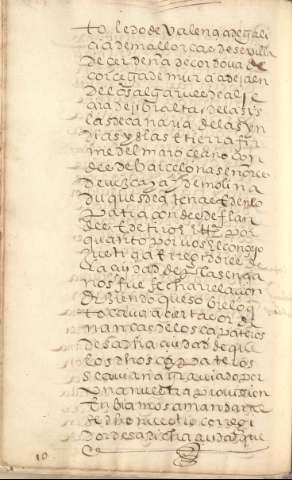 to ledo de valençia de gali
cia de mallorca de sevilla
de cerdeña de cordova de
corcega de murcia de jaen
de los algarves de alje
cira de jibraltar de las is
las de canaria de las yn
dias yslas e tierra fir
me del mar oceano con
de de barcelona señor
de vizcaya y de molina
duques de atenas e de neo
patria conde de flan
des e de tirol etc por
quanto por vos el conçejo
justiçia e regidores de
la çiudad de plasençia
nos fue fecha relaçion
diziendo que sobre lo
tocante a çiertas or de
nanças de los çapateros
desa dha çiudad de que
los dhos çapateros
se avian agraviado por
una nuestra provission
enbiamos a mandar
al dho nuestro corregi
dor desa dicha çiudad que
10